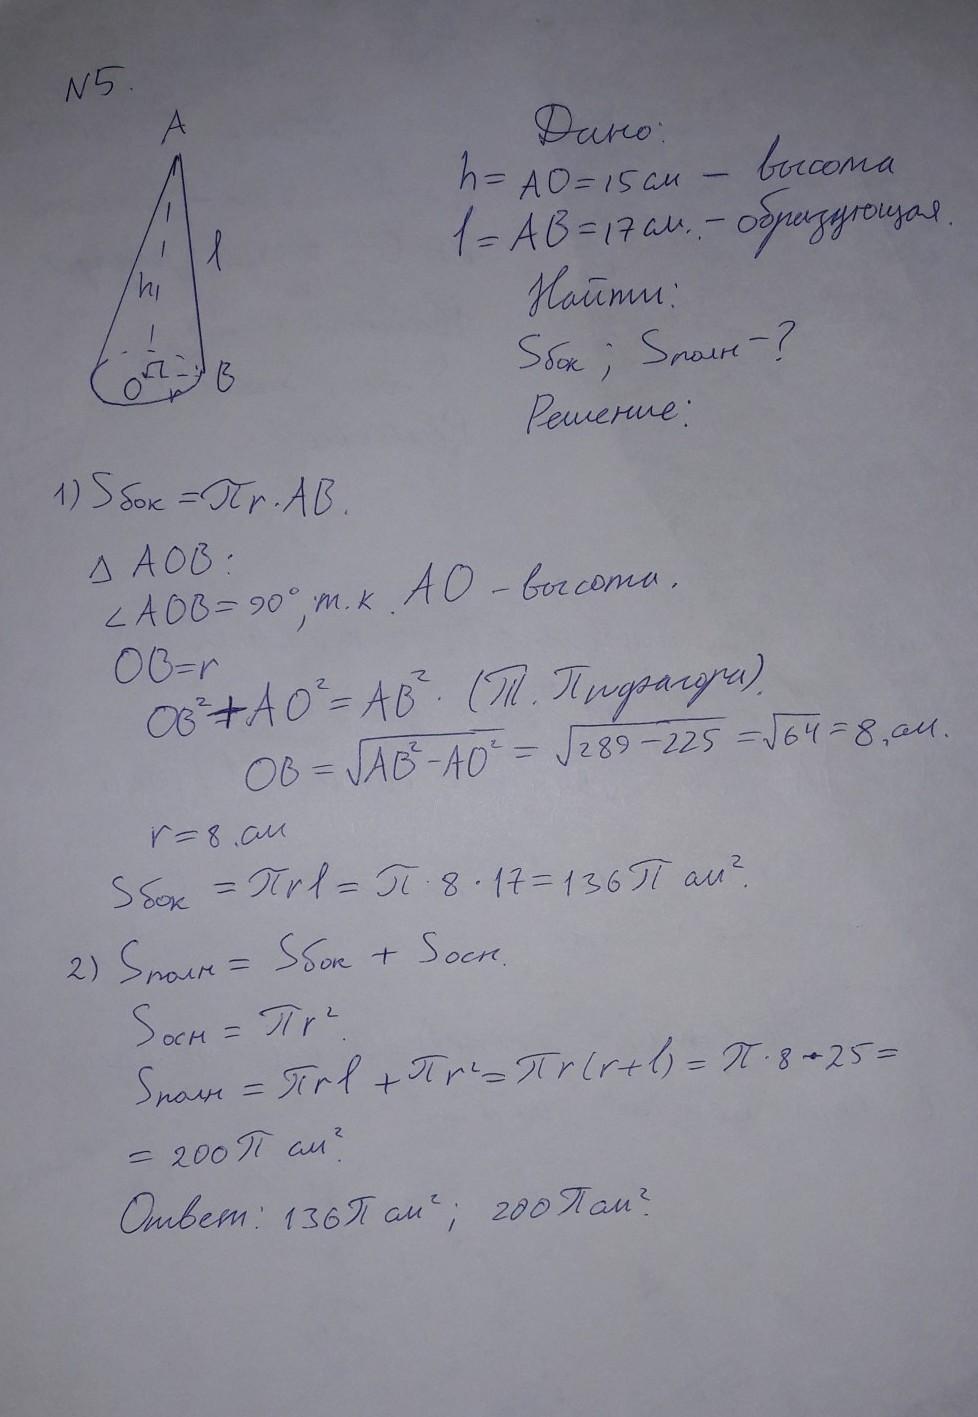 N5.
A
h
l
O
r
B
Дано:
h = AO = 15 см – высота
l = AB = 17 см. – образующая.
Найти:
Sбок ; Sполн – ?
Решение:
1) Sбок = πr · AB.
Δ AOB:
∠AOB = 90°, т.к. AO – высота.
OB = r
OB² + AO² = AB². (Т. Пифагора).
OB = √AB² – AO² = √289 – 225 = √64 = 8 см.
r = 8 см
Sбок = πrl = π · 8 · 17 = 136π см².
2) Sполн = Sбок + Sосн.
Sосн = πr².
Sполн = πrl + πr² = πr(r+l) = π · 8 · 25 =
= 200π см².
Ответ: 136π см²; 200π см².